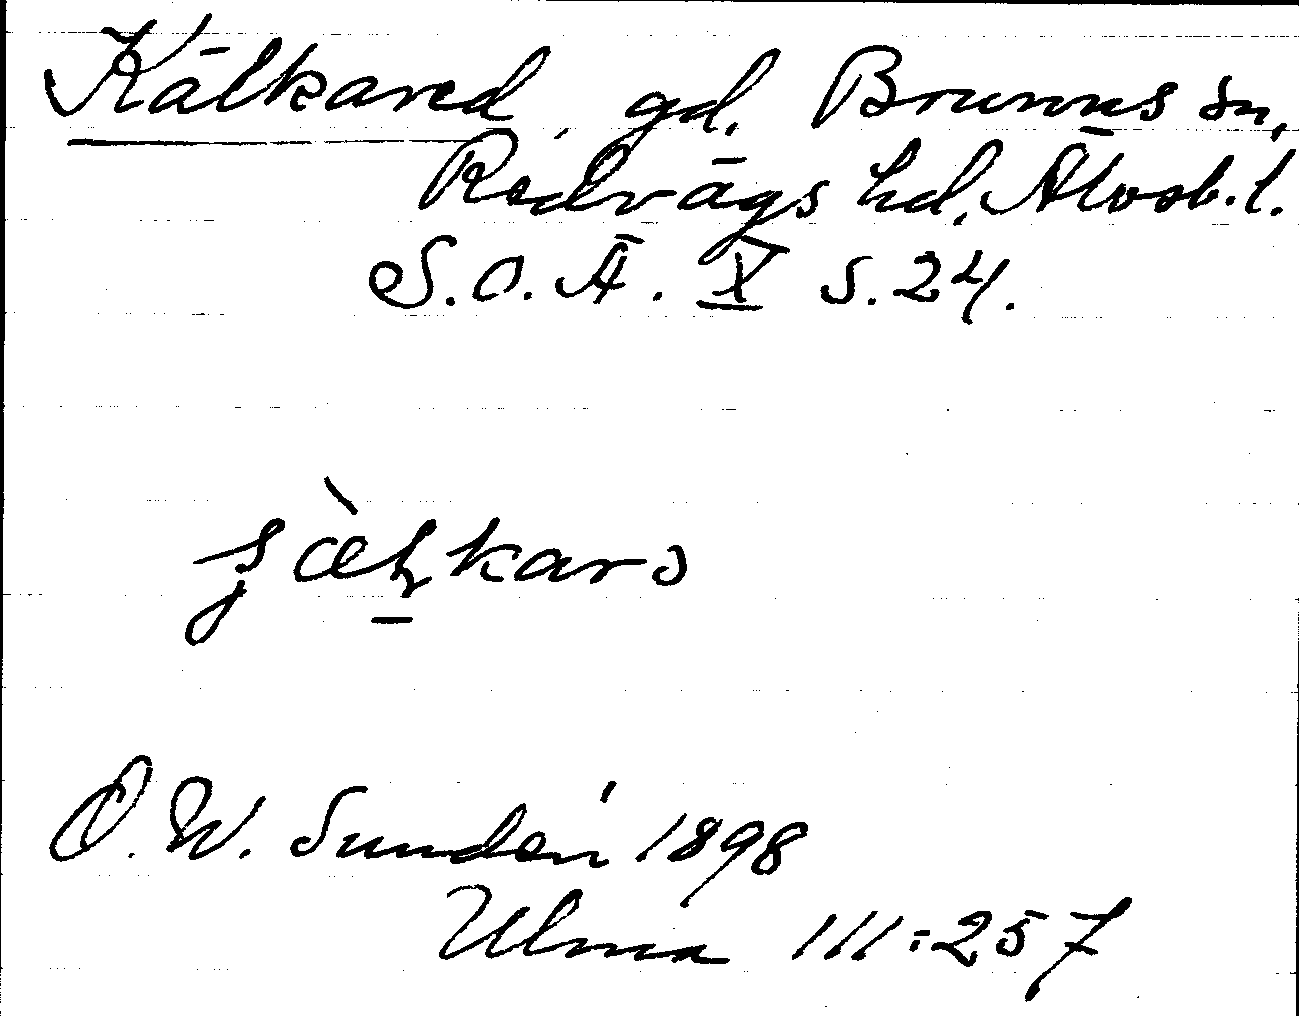 Kälkared, gd. Brunns sn,
Redvägs hd. Älvsb. l.
S.O.Ä. X s. 24.
D. W. Sundén 1898
Ulma 111:257